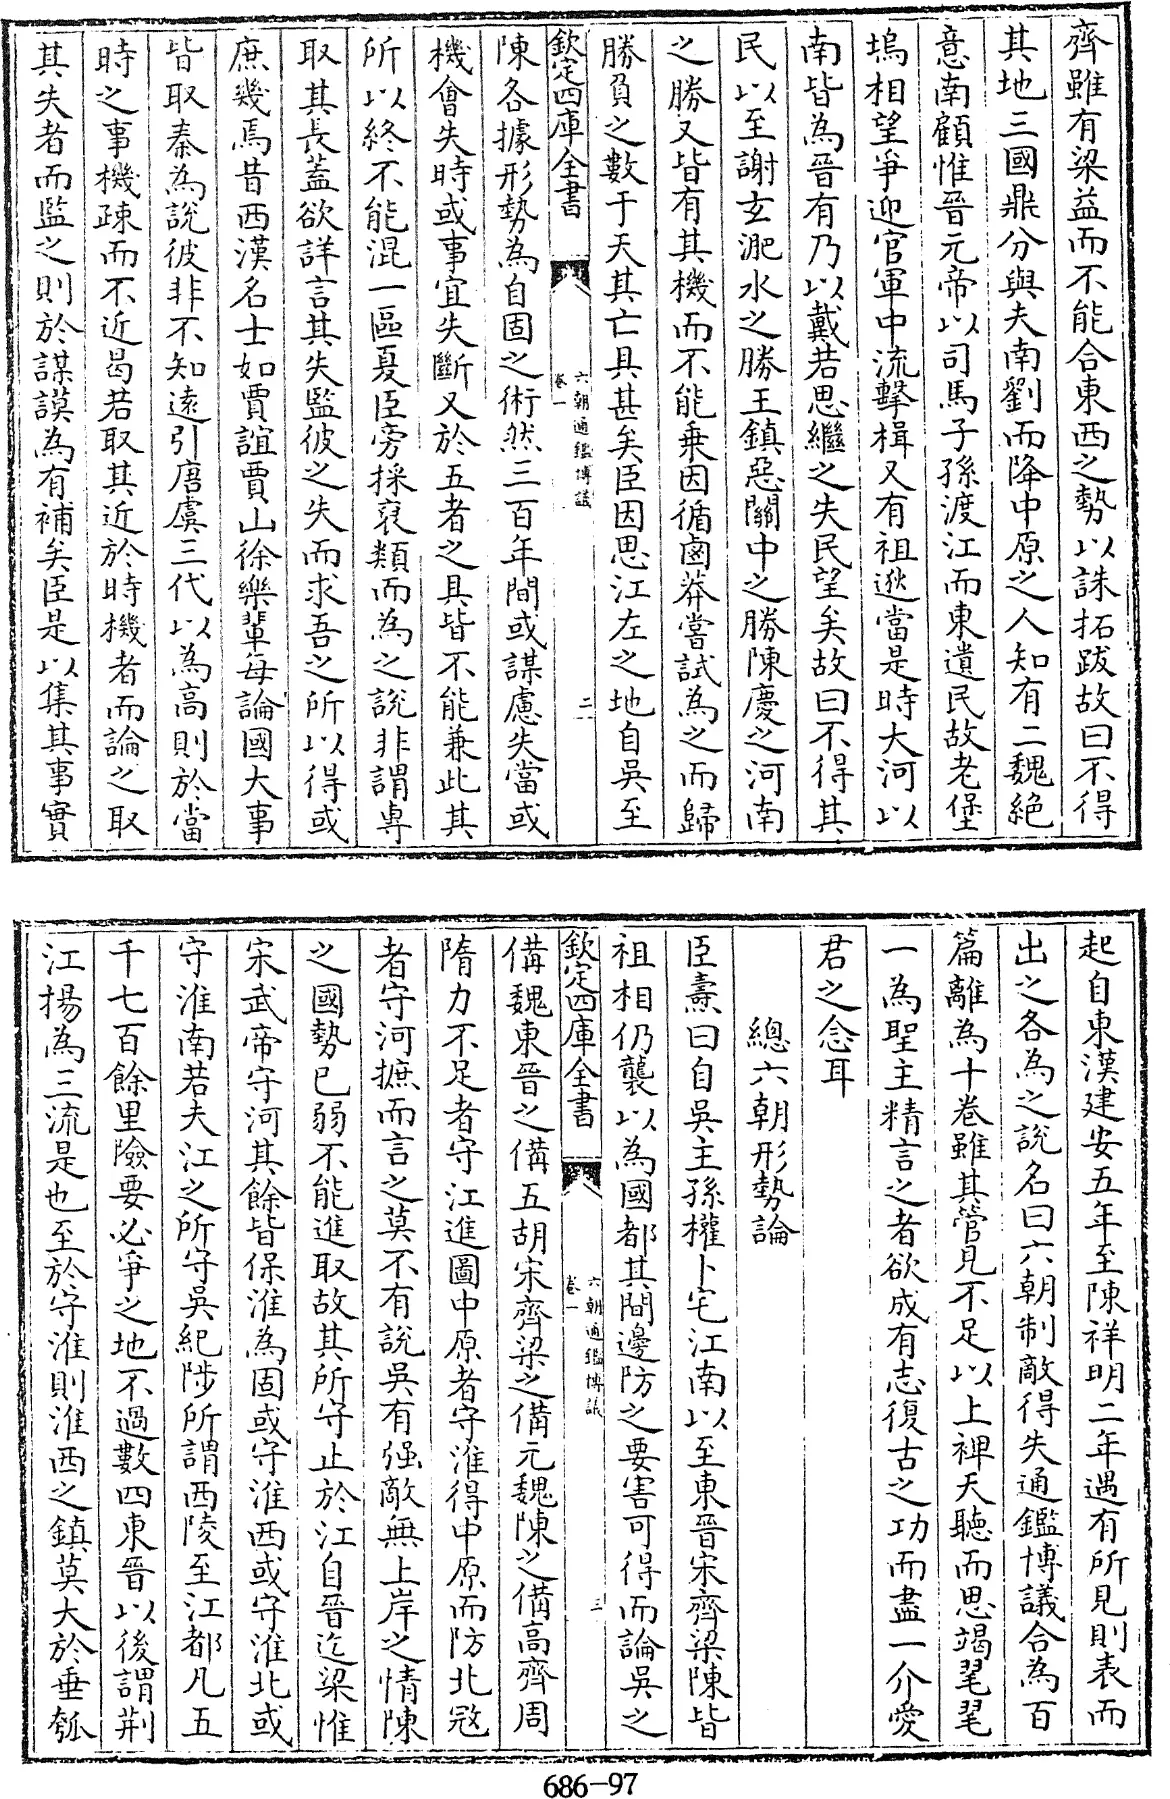 齊雖有梁益而不能合東西之勢以誅拓跋故曰不得
其地三國鼎分與夫南劉而降中原之人知有二魏絶
意南顧惟晉元帝以司馬子孫渡江而東遺民故老堡
塢相望爭迎官軍中流擊楫又有祖逖當是時大河以
南皆為晉有乃以戴若思繼之失民望矣故曰不得其
民以至謝玄淝水之勝王鎮惡關中之勝陳慶之河南
之勝又皆有其機而不能乗因循鹵莽嘗試為之而歸
勝負之數于天其亡具甚矣臣因思江左之地自吳至
欽定四庫全書
六朝通鑑博議
卷一
二
陳各據形勢為自固之術然三百年間或謀慮失當或
機會失時或事宜失斷又於五者之具皆不能兼此其
所以終不能混一區夏臣旁採裒類而為之說非謂專
取其長蓋欲詳言其失監彼之失而求吾之所以得或
庶幾焉昔西漢名士如賈誼賈山徐樂輩每論國大事
皆取秦為說彼非不知遠引唐虞三代以為高則於當
時之事機疎而不近曷若取其近於時機者而論之取
其失者而監之則於謀謨為有補矣臣是以集其事實
起自東漢建安五年至陳祥明二年遇有所見則表而
出之各為之說名曰六朝制敵得失通鑑博議合為百
篇離為十卷雖其管見不足以上裨天聽而思竭毣毣
一為聖主精言之者欲成有志復古之功而盡一介愛
君之念耳
總六朝形勢論
臣燾曰自吳主孫權卜宅江南以至東晉宋齊梁陳皆
祖相仍襲以為國都其間邊防之要害可得而論吳之
欽定四庫全書
六朝通鑑博議
卷一
三
備魏東晉之備五胡宋齊梁之備元魏陳之備高齊周
隋力不足者守江進圖中原者守淮得中原而防北冦
者守河摭而言之莫不有說吳有强敵無上岸之情陳
之國勢已弱不能進取故其所守止於江自晉迄梁惟
宋武帝守河其餘皆保淮為固或守淮西或守淮北或
守淮南若夫江之所守吳紀陟所謂西陵至江都凡五
千七百餘里險要必爭之地不過數四東晉以後謂荆
江揚為三流是也至於守淮則淮西之鎮莫大於垂瓠
686-97